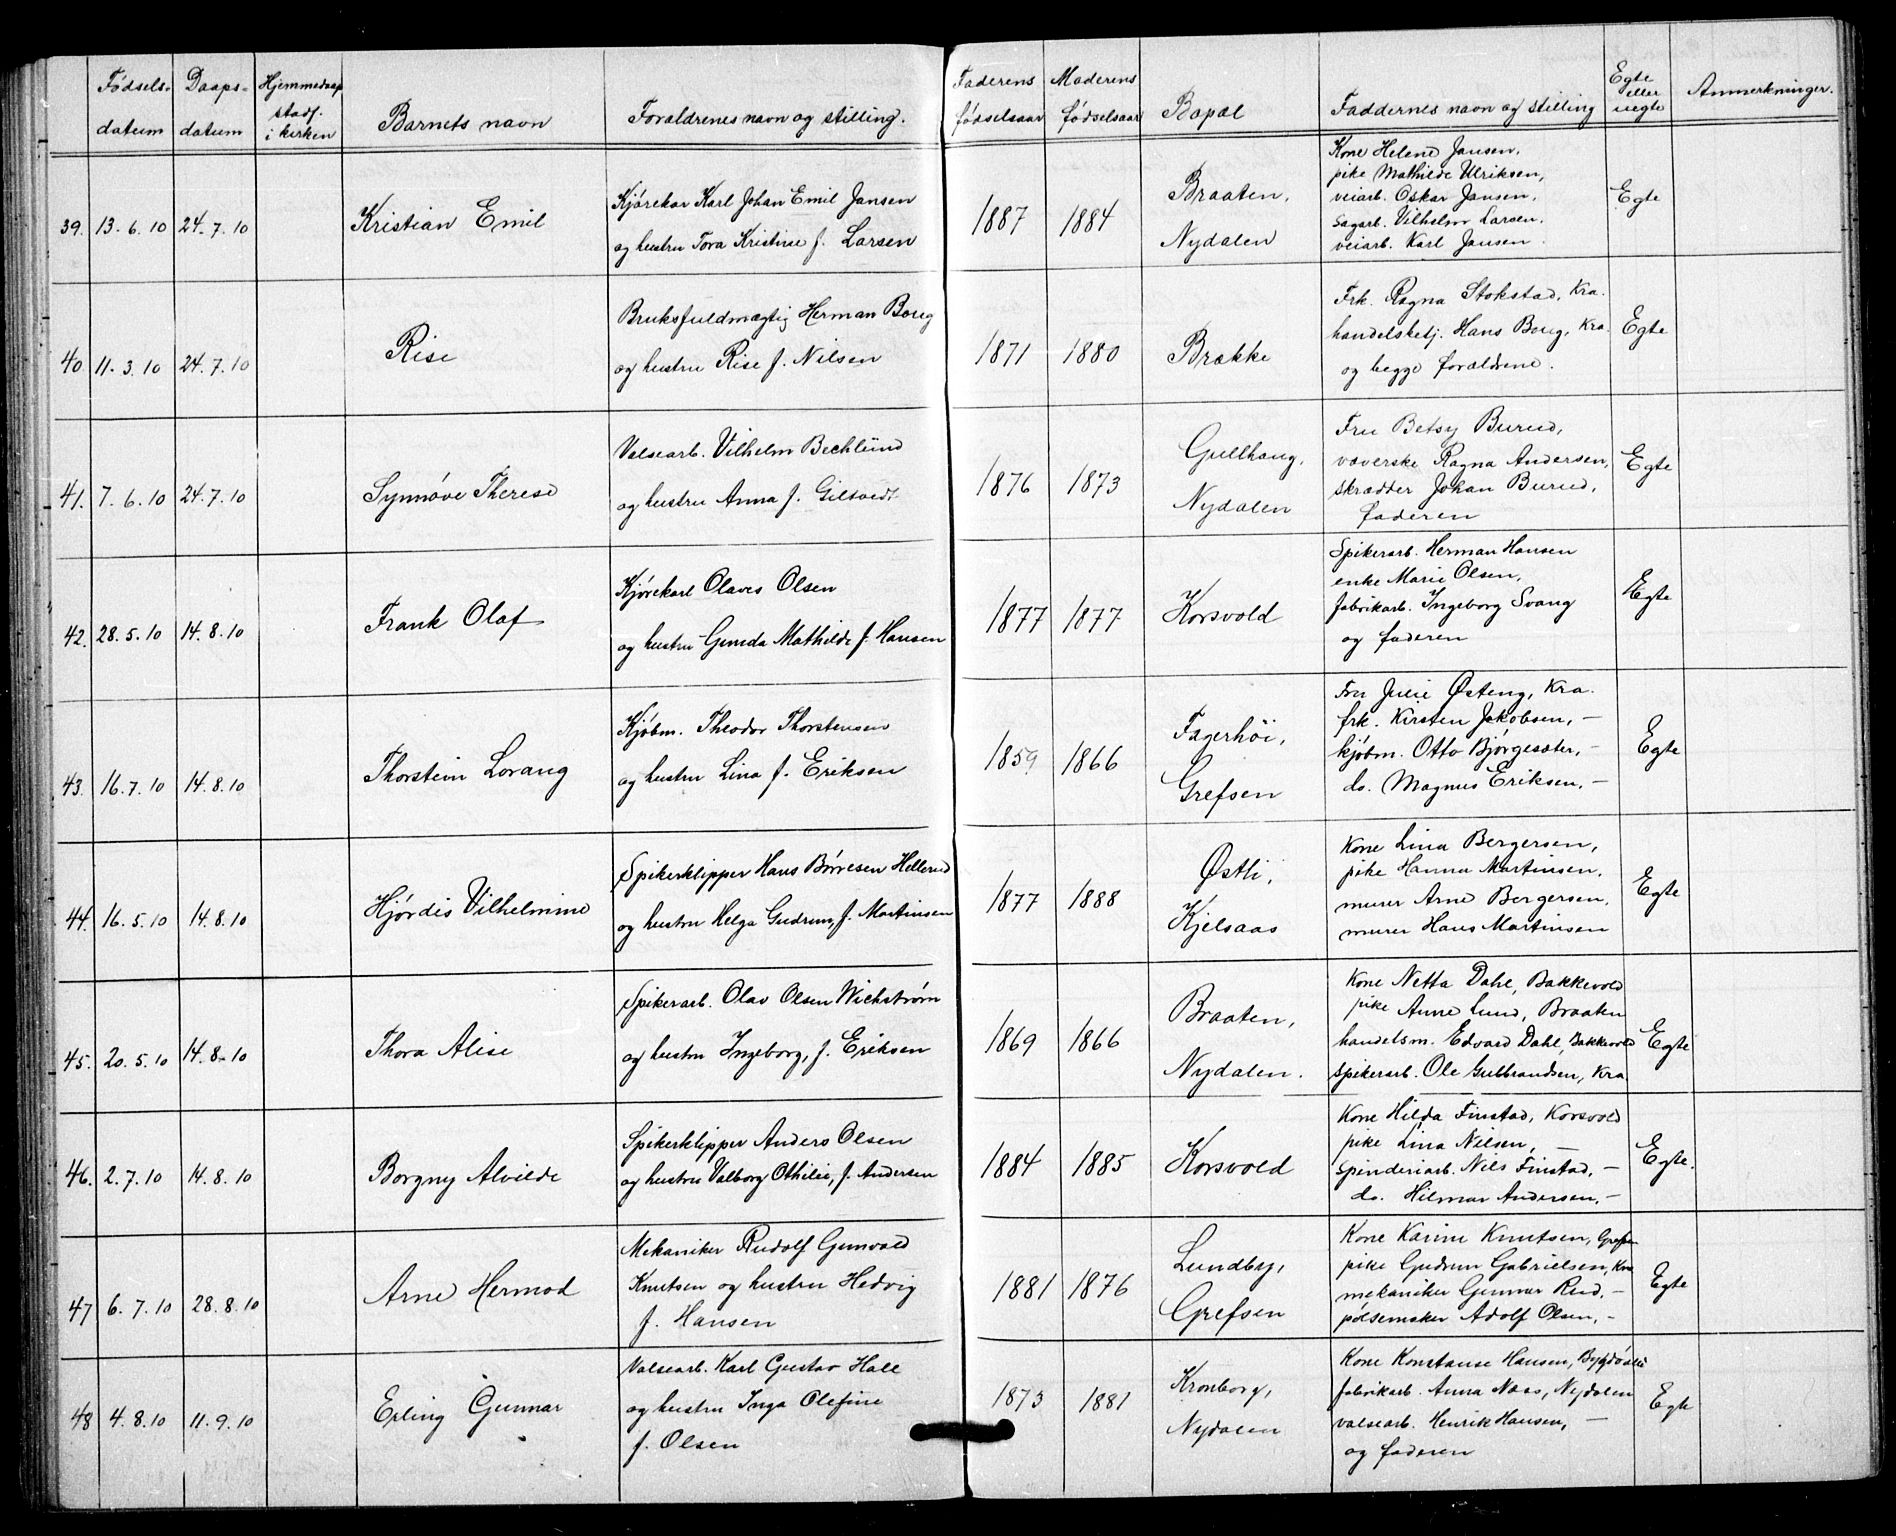 Fødsels- datum | Daaps- datum | Hjemmedaap stadf. i kirken | Barnets navn | Forældrenes navn og stilling. | Faderens fødselsaar | Moderens fødselsaar | Bopæl | Faddernes navn og stilling | Egte eller uegte | Anmerkninger.
39. 13. 6. 10 24. 7. 10 Kristian Emil
Kjørekar Karl Johan Emil Jansen
og hustru Tora Kristine f. Larsen
1887 1884
Braaten,
Nydalen
Kone Helene Jansen,
pike Mathilde Ulriksen,
veiarb. Oskar Jansen,
Sagarb. Vilhelm Larsen.
veiarb. Karl Jansen.
Egte
40. 11. 3. 10 24. 7. 10 Rise
Bruksfuldmægtig Herman Boug
og hustru Rise f. Nilsen
1871 1880 Brække
Frk. Ragna Stokstad, Kra.
handelsbetj. Hans Boug, Kra
og begge forældrene.
Egte
41. 7. 6. 10 24. 7. 10 Synnøve Therese
Valsearb. Vilhelm Bechlund
og hustru Anna f. Giltvedt
1876 1873
Gullhaug,
Nydalen
Fru Betsy Burud,
væverske Ragna Andersen,
skrædder Johan Burud,
faderen
Egte
42. 28. 5. 10 14. 8. 10 Frank Olaf
Kjørekarl Olaves Olsen
og hustru Gunda Mathilde f. Hansen
1877 1877 Korsvold
Spikerarb. Herman Hansen
enke Marie Olsen,
fabrikarb. Ingeborg Svang
og faderen
Egte
43. 16. 7. 10 14. 8. 10 Thorstein Lorang
Kjøbm. Theodor Thorstensen
og hustru Lina f. Eriksen
1859 1866
Fagerhöi,
Grefsen
Fru Julie Østeng, Kra.
frk. Kirsten Jakobsen, —
kjøbm. Otto Bjørgesæter, —
do. Magnus Eriksen, —
Egte
44. 16. 5. 10 14. 8. 10 Hjørdis Vilhelmine
Spikerklipper Hans Børresen Hellerud
og hustru Helga Gudrun, f. Martinsen
1877 1888
Østli,
Kjelsaas
Kone Lina Bergersen,
pike Hanna Martinsen,
murer Arne Bergersen,
murer Hans Martinsen
Egte
45. 20. 5. 10 14. 8. 10 Thora Alise
Spikerarb. Olav Olsen Wichstrøm
og hustru Ingeborg, f. Eriksen
1869 1866
Braaten,
Nydalen.
Kone Netta Dahl, Bakkevold
pike Anne Lund, Braaten
handelsm. Edvard Dahl, Bakkevold
spikerarb. Ole Gulbrandsen, Kra
Egte
46. 2. 7. 10 14. 8. 10 Borgny Alvilde
Spikerklipper Anders Olsen
og hustru Valborg Othilie, f. Andersen
1884 1885 Korsvold
Kone Hilda Finstad, Korsvold
pike Lina Nilsen, —
Spinderiarb. Nils Finstad, —
do. Hilmar Andersen, —
Egte.
47 6. 7. 10 28. 8. 10 Arne Hermod
Mekaniker Rudolf Gunvald
Knutsen og hustru Hedvig
f. Hansen
1881 1876
Lundby,
Grefsen
Kone Karine Knutsen, Grefsen
pike Gudrun Gabrielsen, Kra
mekaniker Gunnar Rud, —
pølsemaker Adolf Olsen, —
Egte
48 4. 8. 10 11. 9. 10 Erling Gunnar
Valsearb. Karl Gustav Hall
og hustru Inga Olefine
f. Olsen
1873 1881
Kronborg,
Nydalen
Kone Konstanse Hansen,
fabrikarb. Anna Naas, Nydalen
valsearb. Henrik Hansen, —
og faderen
Egte